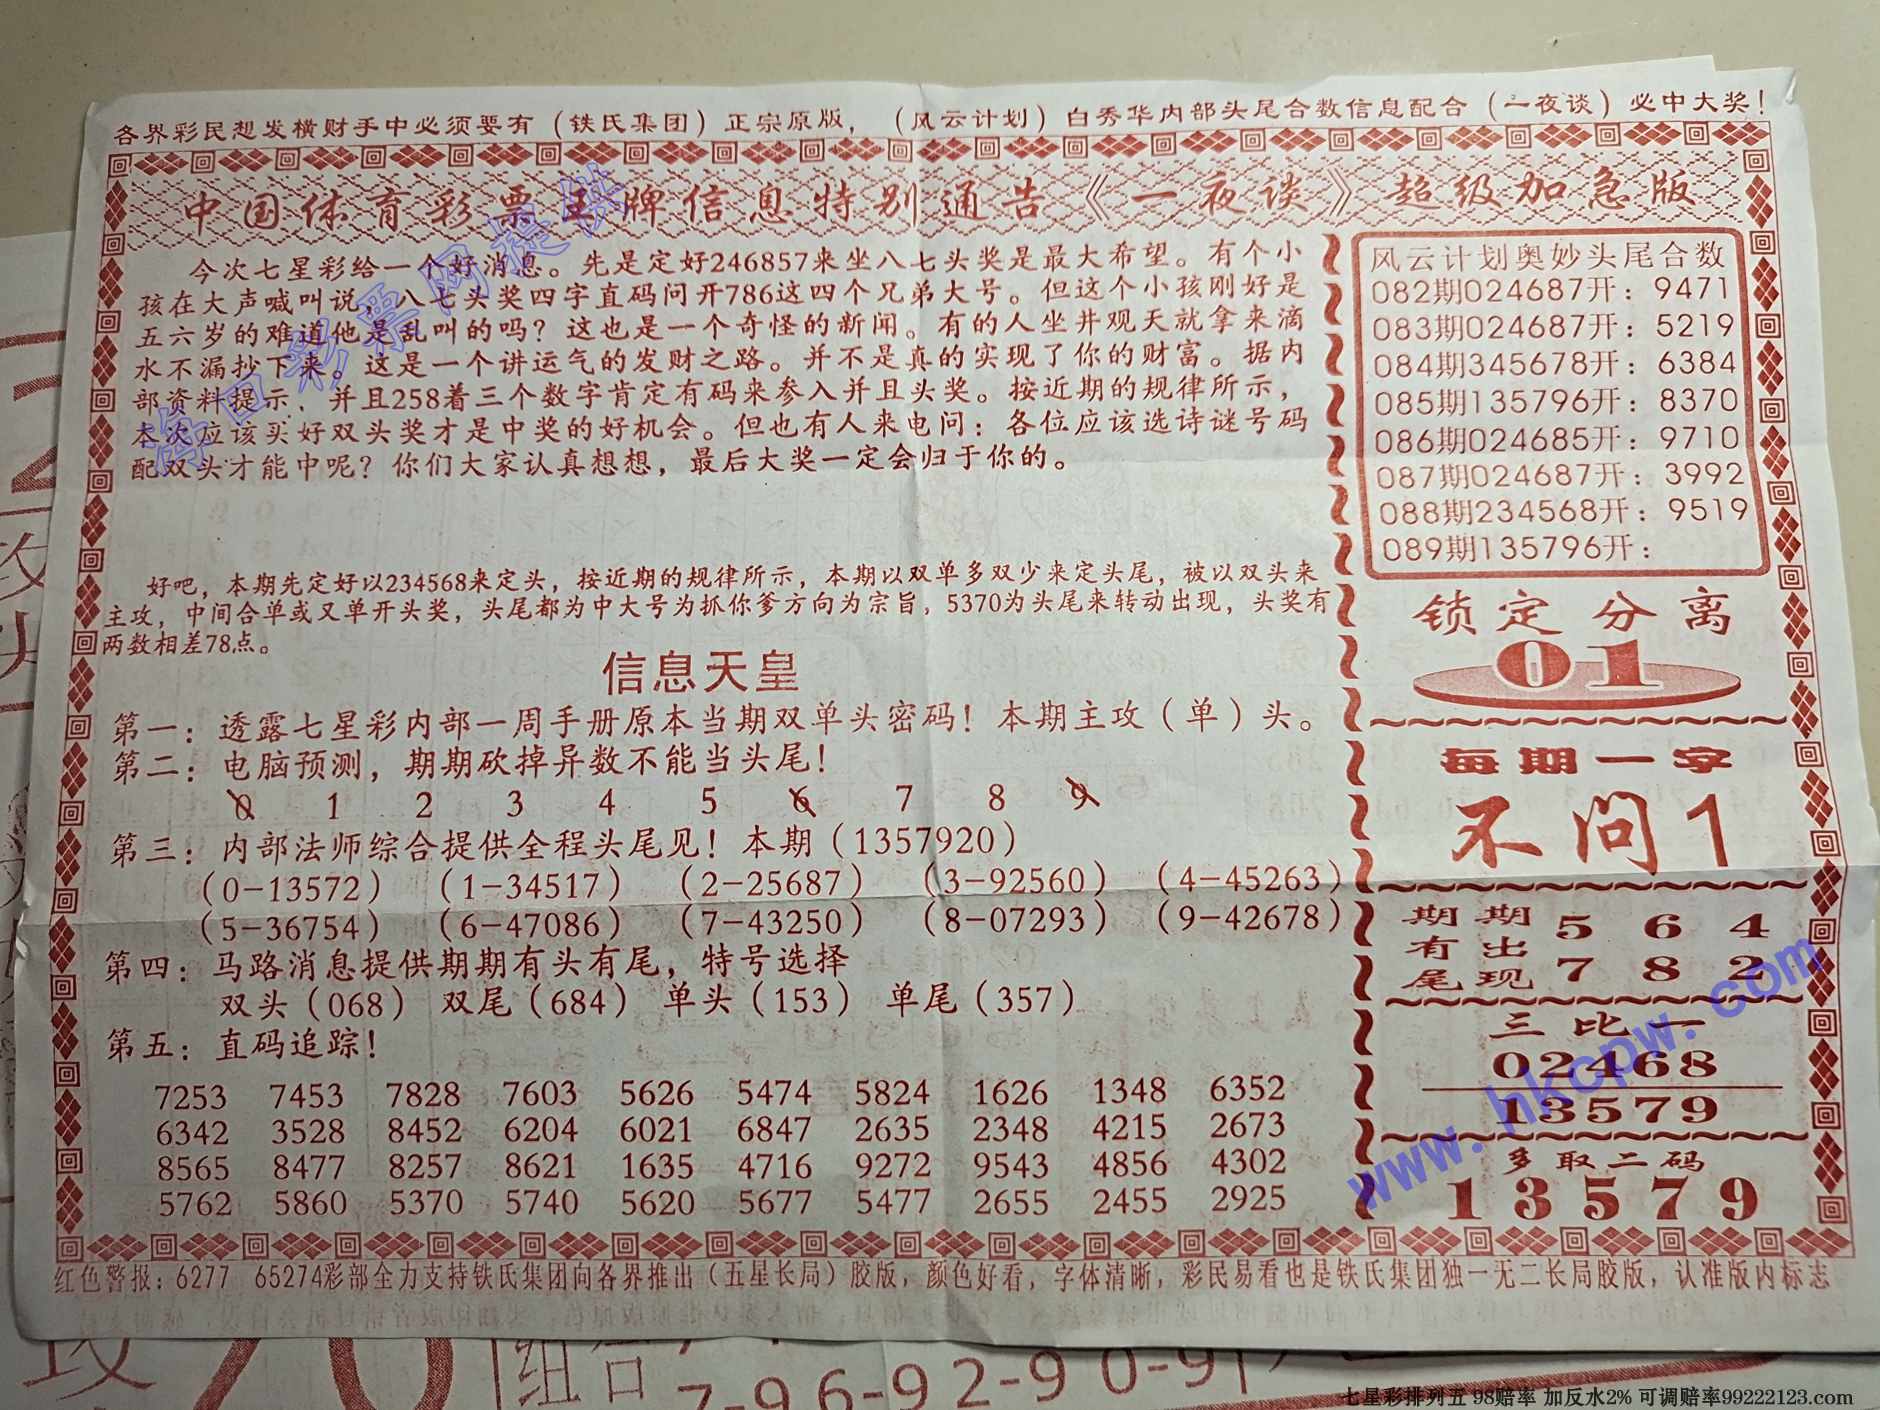 各界彩民想发横财手中必须要有（铁氏集团）正宗原版，（风云计划）白秀华内部头尾合数信息配合（一夜谈）必中大奖！
中国体育彩票王牌信息特别通告《一夜谈》超级加急版
今次七星彩给一个好消息。先是定好246857来坐八七头奖是最大希望。有个小
孩在大声喊叫说，八七头奖四字直码问开786这四个兄弟大号。但这个小孩刚好是
五六岁的难道他是乱叫的吗？这也是一个奇怪的新闻。有的人坐井观天就拿来滴
水不漏抄下来。这是一个讲运气的发财之路。并不是真的实现了你的财富。据内
部资料提示，并且258着三个数字肯定有码来参入并且头奖。按近期的规律所示，
本次应该买好双头奖才是中奖的好机会。但也有人来电问：各位应该选诗谜号码
配双头才能中呢？你们大家认真想想，最后大奖一定会归于你的。
好吧，本期先定好以234568来定头，按近期的规律所示，本期以双单多双少来定头尾，被以双头来
主攻，中间合单或又单开头奖，头尾都为中大号为抓你爹方向为宗旨，5370为头尾来转动出现，头奖有
两数相差78点。
信息天皇
第一：透露七星彩内部一周手册原本当期双单头密码！本期主攻（单）头。
第二：电脑预测，期期砍掉异数不能当头尾！
0 1 2 3 4 5 6 7 8 9
第三：内部法师综合提供全程头尾见！本期（1357920）
（0-13572） （1-34517） （2-25687） （3-92560） （4-45263）
（5-36754） （6-47086） （7-43250） （8-07293） （9-42678）
第四：马路消息提供期期有头有尾，特号选择
双头（068） 双尾（684） 单头（153） 单尾（357）
第五：直码追踪！
7253 7453 7828 7603 5626 5474 5824 1626 1348 6352
6342 3528 8452 6204 6021 6847 2635 2348 4215 2673
8565 8477 8257 8621 1635 4716 9272 9543 4856 4302
5762 5860 5370 5740 5620 5677 5477 2655 2455 2925
风云计划奥妙头尾合数
082期024687开：9471
083期024687开：5219
084期345678开：6384
085期135796开：8370
086期024685开：9710
087期024687开：3992
088期234568开：9519
089期135796开：
锁定分离
01
每期一字
不问1
期期 5 6 4
有出
尾现 7 8 2
三比一
02468
13579
多取二码
13579
红色警报：6277 65274彩部全力支持铁氏集团向各界推出（五星长局）胶版，颜色好看，字体清晰，彩民易看也是铁氏集团独一无二长局胶版，认准版内标志
海口彩票网提供
www.hkcpw.com
组合
7-96-92-90-9
七星彩排列五 98赔率 加反水2% 可调赔率99222123.com